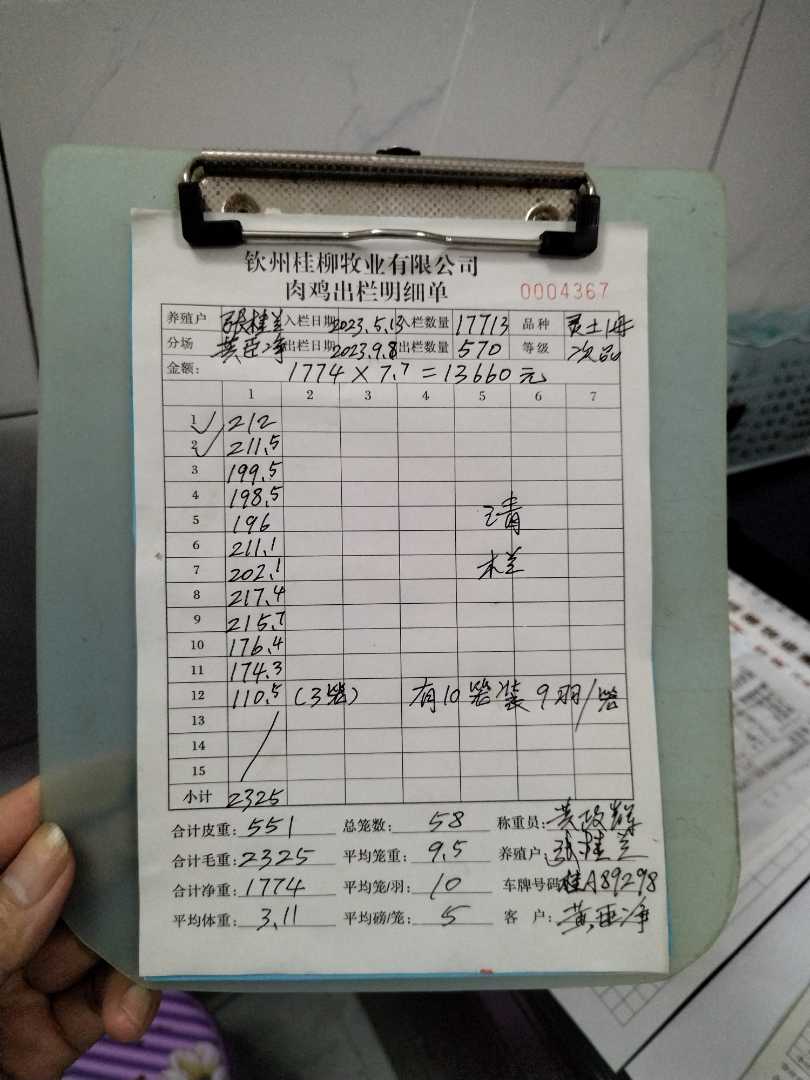 钦州桂柳牧业有限公司
肉鸡出栏明细单 0004367
养殖户 张桂兰 入栏日期 2023.5.13 入栏数量 17713 品种 灵土
分场 黄亚净 出栏日期 2023.9.8 出栏数量 570 等级 次品
金额: 1774 × 7.7 = 13660 元
1 2 3 4 5 6 7
1 212
2 211.5
3 199.5
4 198.5
5 196
6 211.1
7 202.1
8 217.4
9 215.7
10 176.4
11 174.3
12 110.5 (3笼) 有10笼装9羽/笼
13
14
15
小计 2325
清
栏
合计皮重: 551 总笼数: 58 称重员: 黄政辉
合计毛重: 2325 平均笼重: 9.5 养殖户: 张桂兰
合计净重: 1774 平均笼/羽: 10 车牌号码: 桂A89298
平均体重: 3.11 平均磅/笼: 5 客 户: 黄亚净